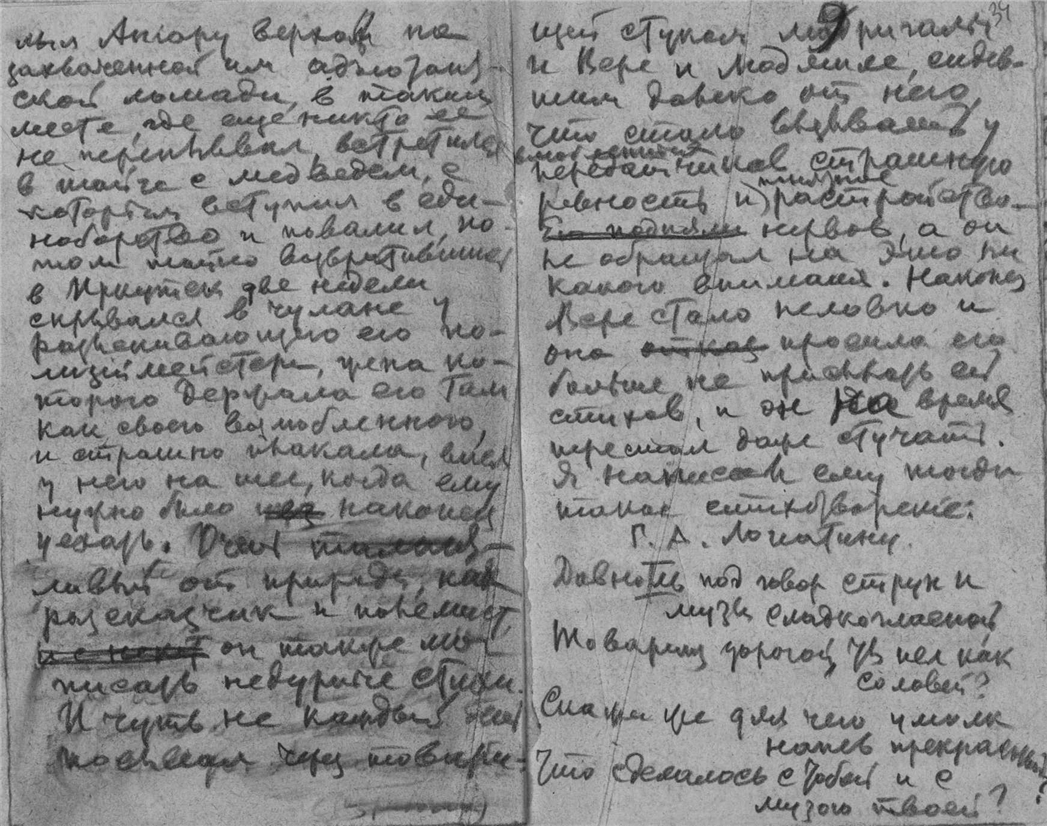 лыл Ангару верхом на
захваченной им
ской лошади, в таком
месте, где еще никто ее
не переплывал, встретился
в тайге с медведем, с
которым вступил в еди-
ноборство и повалил, по-
том тайно возвратившись
в Иркутск две недели
скрывался в чулане у
разыскивающего его по-
лицмейстера, жена ко-
торого держала его там
как своего возлюбленного,
и страшно плакала, вися
у него на шее, когда ему
нужно было наконец
уехать. Очень талант-
ливый от природы, как
разсказчик и полемист,
он также мог
писать недурные стихи.
И чуть не каждый день
посылал через товари-
щей стуком
и Вере и Людмиле, сидев-
шим далеко от него,
что стало вызывать у
передатчиков страшную
ревность и расстройство
Его подняли нервов, а он
не обращал на это ни
какого внимания. Наконец
Вере стало неловко и
она просила его
больше не присылать ей
стихов, и он на время
перестал даже стучать.
Я написал ему тогда
такое стихотворение:
Г. А. Лопатину.
Давно ль под говор струн и
музы сладкогласной
Товарищ дорогой, ты пел как
соловей?
Скажи же для чего умолк
напев прекрасный?
Что сделалось с тобой и с
музою твоей?